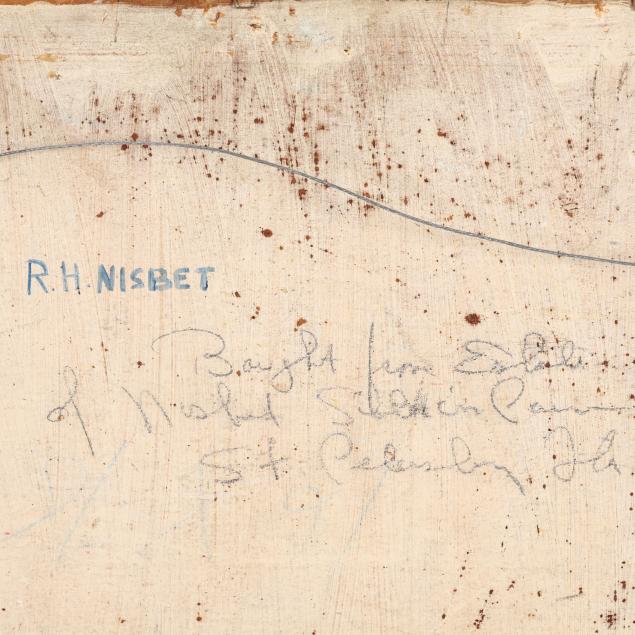 R.H. NISBET
Bought from Estate
of Nisbet
St Petersburg Fla